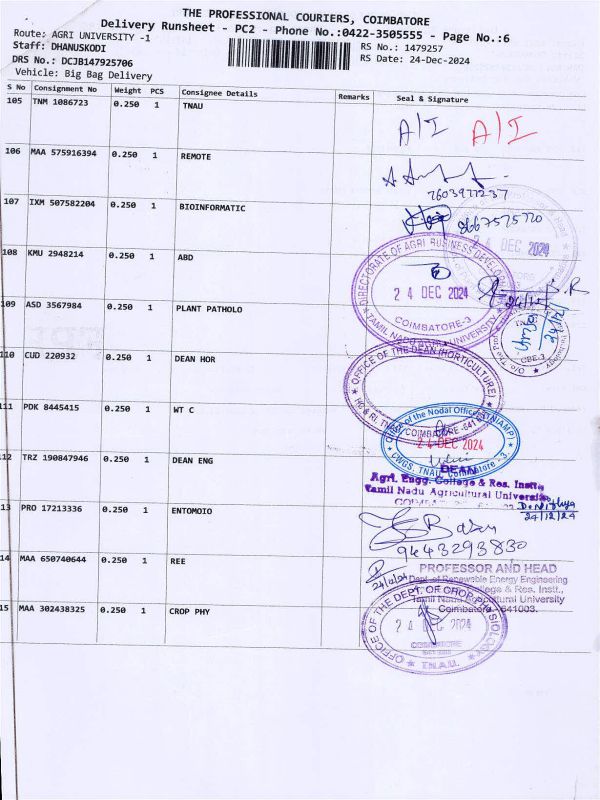 THE PROFESSIONAL COURIERS, COIMBATORE
Delivery Runsheet - PC2 - Phone No.:0422-3505555 - Page No.:6
Route: AGRI UNIVERSITY -1
RS No.: 1479257
Staff: DHANUSKODI
RS Date: 24-Dec-2024
DRS No.: DCJB147925706
Vehicle: Big Bag Delivery
S No Consignment No Weight PCS Consignee Details Remarks Seal & Signature
105 TNM 1086723 0.250 1 TNAU
A/I A/I
106 MAA 575916394 0.250 1 REMOTE
7603977237
107 IXM 507582204 0.250 1 BIOINFORMATIC
8667575770
24 DEC 2024
108 KMU 2948214 0.250 1 ABD
DIRECTORATE OF AGRI BUSINESS
24 DEC 2024
COIMBATORE-3
TAMIL NADU AGRI UNIVERSITY
109 ASD 3567984 0.250 1 PLANT PATHOLO
CBE-3
110 CUD 220932 0.250 1 DEAN HOR
OFFICE OF THE DEAN (HORTICULTURE)
COIMBATORE-641
111 PDK 8445415 0.250 1 WT C
of the Nodal Officer (NIAMP)
24 DEC 2024
CWGS, TNAU, Coimbatore - 3.
112 TRZ 190847946 0.250 1 DEAN ENG
DEAN
Agri. Engg. College & Res. Instt.,
Tamil Nadu Agricultural University
24/12/24
13 PRO 17213336 0.250 1 ENTOMOIO
9443293830
14 MAA 650740644 0.250 1 REE
PROFESSOR AND HEAD
Dept. of Renewable Energy Engineering
College & Res. Instt.,
Tamil Nadu Agricultural University
Coimbatore - 641003.
15 MAA 302438325 0.250 1 CROP PHY
OFFICE OF THE DEPT. OF CROP PHYSIOLOGY
24 DEC 2024
COIMBATORE
T.N.A.U.